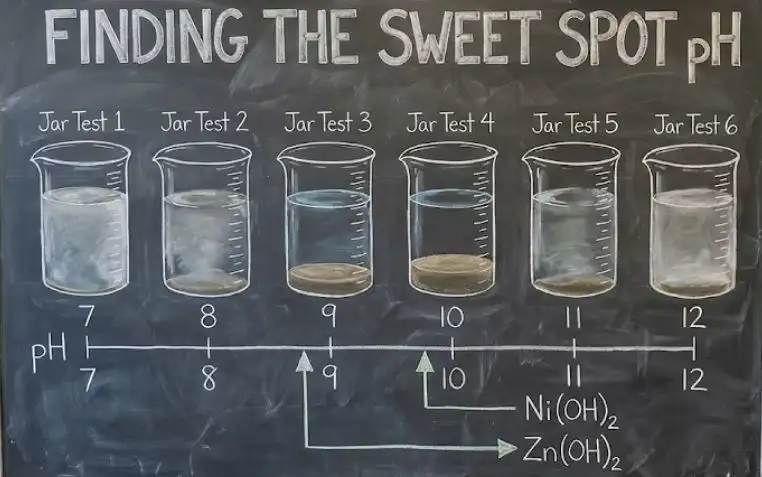 FINDING THE SWEET SPOT pH
Jar Test 1 Jar Test 2 Jar Test 3 Jar Test 4 Jar Test 5 Jar Test 6
7 8 9 10 11 12
pH
7 8 9 10 11 12
Ni(OH)₂
Zn(OH)₂